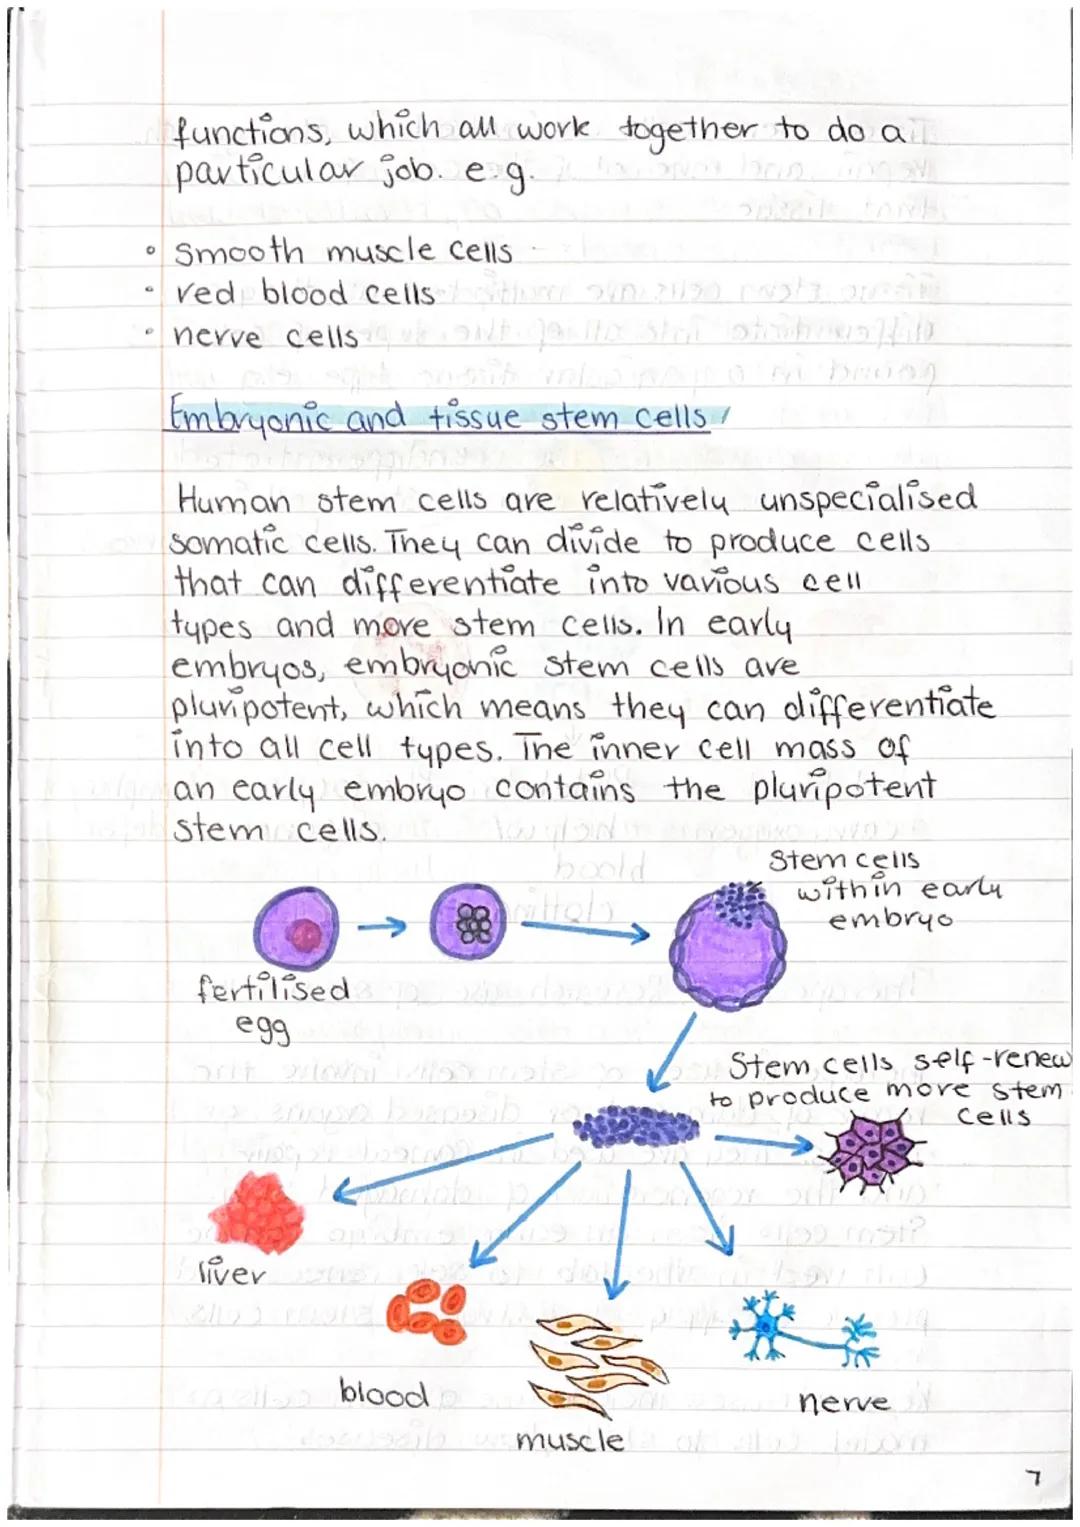 functions, which all work together to do a
particular job. e.g.
• Smooth muscle cells
• red blood cells
• nerve cells
Embryonic and tissue stem cells
Human stem cells are relatively unspecialised
somatic cells. They can divide to produce cells
that can differentiate into various cell
types and more stem cells. In early
embryos, embryonic stem cells are
pluripotent, which means they can differentiate
into all cell types. The inner cell mass of
an early embryo contains the pluripotent
stem cells.
Stem cells
within early
embryo
fertilised
egg
Stem cells self-renew
to produce more stem
cells
liver
blood
muscle
nerve
7